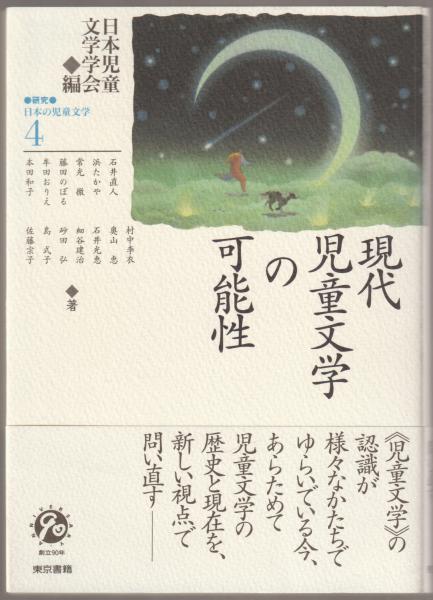 日本児童
文学学会
◆編
●研究●
日本の児童文学
4
石井直人
浜たかや
常光 徹
藤田のぼる
牟田おりえ
本田和子
村中李衣
奥山 恵
石井光恵
細谷建治
砂田 弘
島 式子
佐藤宗子
◆著
現代
児童文学
の
可能性
《児童文学》の
認識が
様々なかたちで
ゆらいでいる今、
あらためて
児童文学の
歴史と現在を、
新しい視点で
問い直す――
創立90年
東京書籍